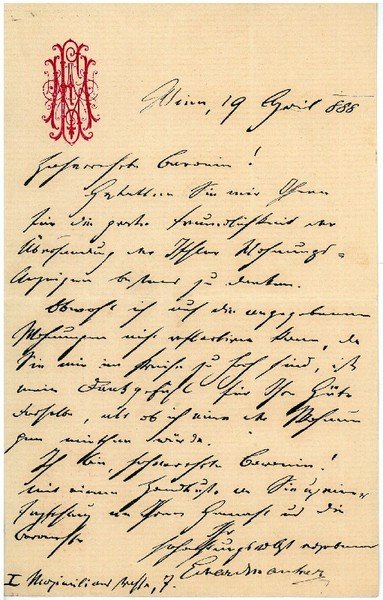 Wien, 19 April 888
Hochverehrte Baronin!
Gestatten Sie mir Ihnen
für die große Freundlichkeit der
Übersendung der Ischler Wohnungs-
Anzeigen bestens zu danken.
Obwohl ich auf die angegebenen
Wohnungen nicht reflectiren kann, da
Sie mir im Preise zu hoch sind, ist
mein Dankgefühl für Ihre Güte
dasselbe, als ob ich eine der Wohnun
gen miethen würde.
Ich bin hochverehrte Baronin!
mit einem Handkuß an Sie und
Empfehlung an Ihren Gemahl und die
Baronesse
Ihr
hochachtungsvollst ergebener
I Maximilianstrasse, 7.